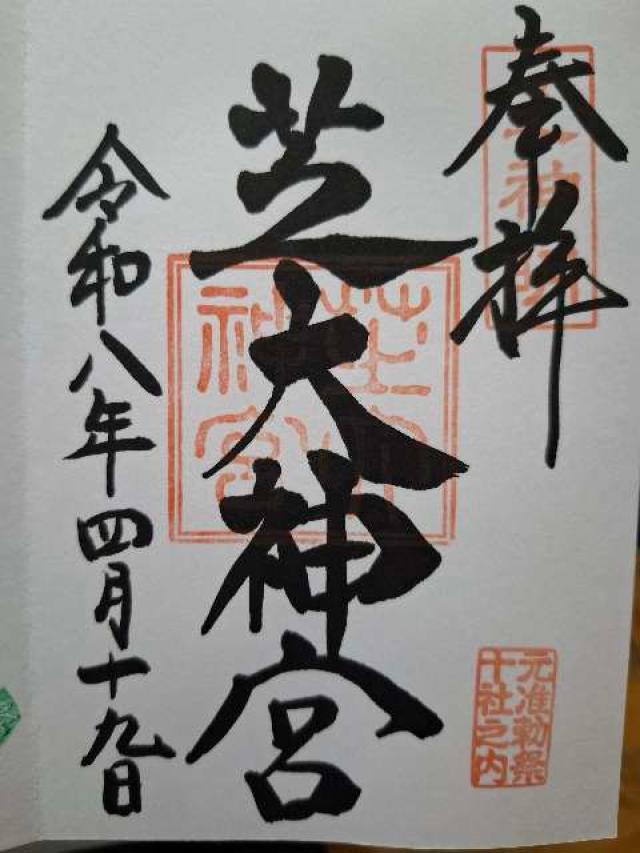 奉拝
芝大神宮
令和八年四月十九日
元准勅祭
十社之内